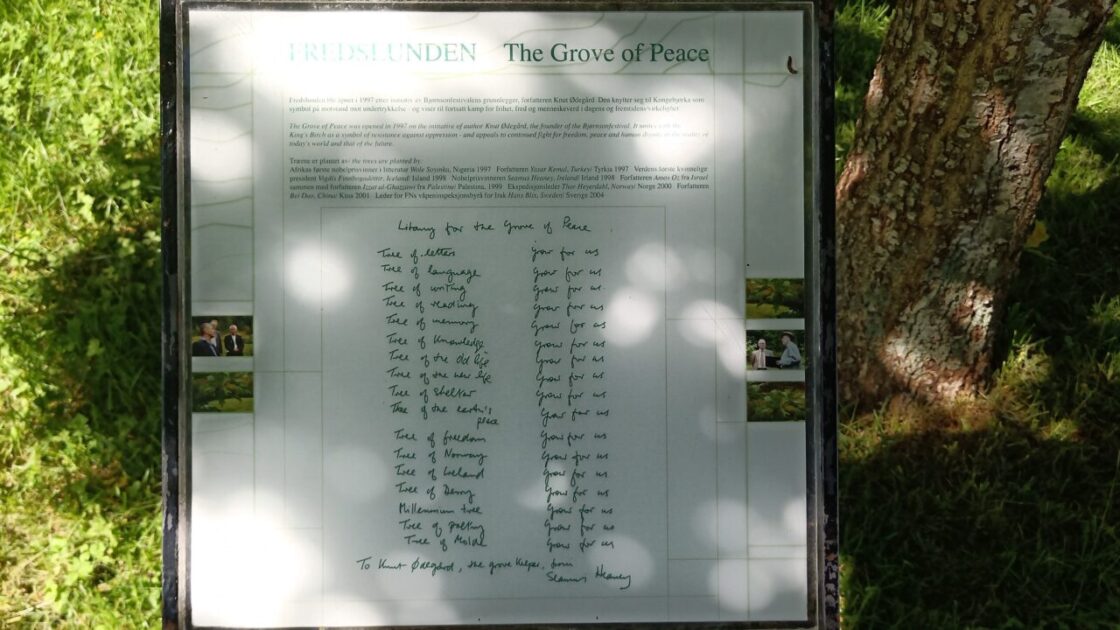 FREDSLUNDEN The Grove of Peace
Fredslunden ble åpnet i 1997 etter initiativ av Bjørnsonfestivalens grunnlegger, forfatteren Knut Ødegård. Den knytter seg til Kongebjørka som
symbol på motstand mot undertrykkelse - og viser til fortsatt kamp for frihet, fred og menneskeverd i dagens og fremtidens virkelighet.
The Grove of Peace was opened in 1997 on the initiative of author Knut Ødegård, the founder of the Bjørnsonfestival. It unites with the
King's Birch as a symbol of resistance against oppression - and appeals to continued fight for freedom, peace and human dignity in the reality of
today's world and that of the future.
Trærne er plantet av/ the trees are planted by:
Afrikas første nobelprisvinner i litteratur Wole Soyinka, Nigeria 1997 Forfatteren Yasar Kemal, Turkey/ Tyrkia 1997 Verdens første kvinnelige
president Vigdis Finnbogadóttir, Iceland/ Island 1998 Nobelprisvinneren Seamus Heaney, Ireland/ Irland 1998 Forfatteren Amos Oz fra Israel
sammen med forfatteren Izzat al-Ghazzawi fra Palestine/ Palestina, 1999 Ekspedisjonsleder Thor Heyerdahl, Norway/ Norge 2000 Forfatteren
Bei Dao, China/ Kina 2001 Leder for FNs våpeninspeksjonsbyrå for Irak Hans Blix, Sweden/ Sverige 2004
Litany for the Grove of Peace
Tree of letters grow for us
Tree of language grow for us
Tree of writing grow for us
Tree of reading grow for us
Tree of memory grow for us
Tree of knowledge grow for us
Tree of the old life grow for us
Tree of the new life grow for us
Tree of shelter grow for us
Tree of the earth's grow for us
peace
Tree of freedom grow for us
Tree of Norway grow for us
Tree of Ireland grow for us
Tree of Derry grow for us
Millennium tree grow for us
Tree of poetry grow for us
Tree of Molde grow for us
To Knut Ødegård, the grove keeper, from
Seamus Heaney